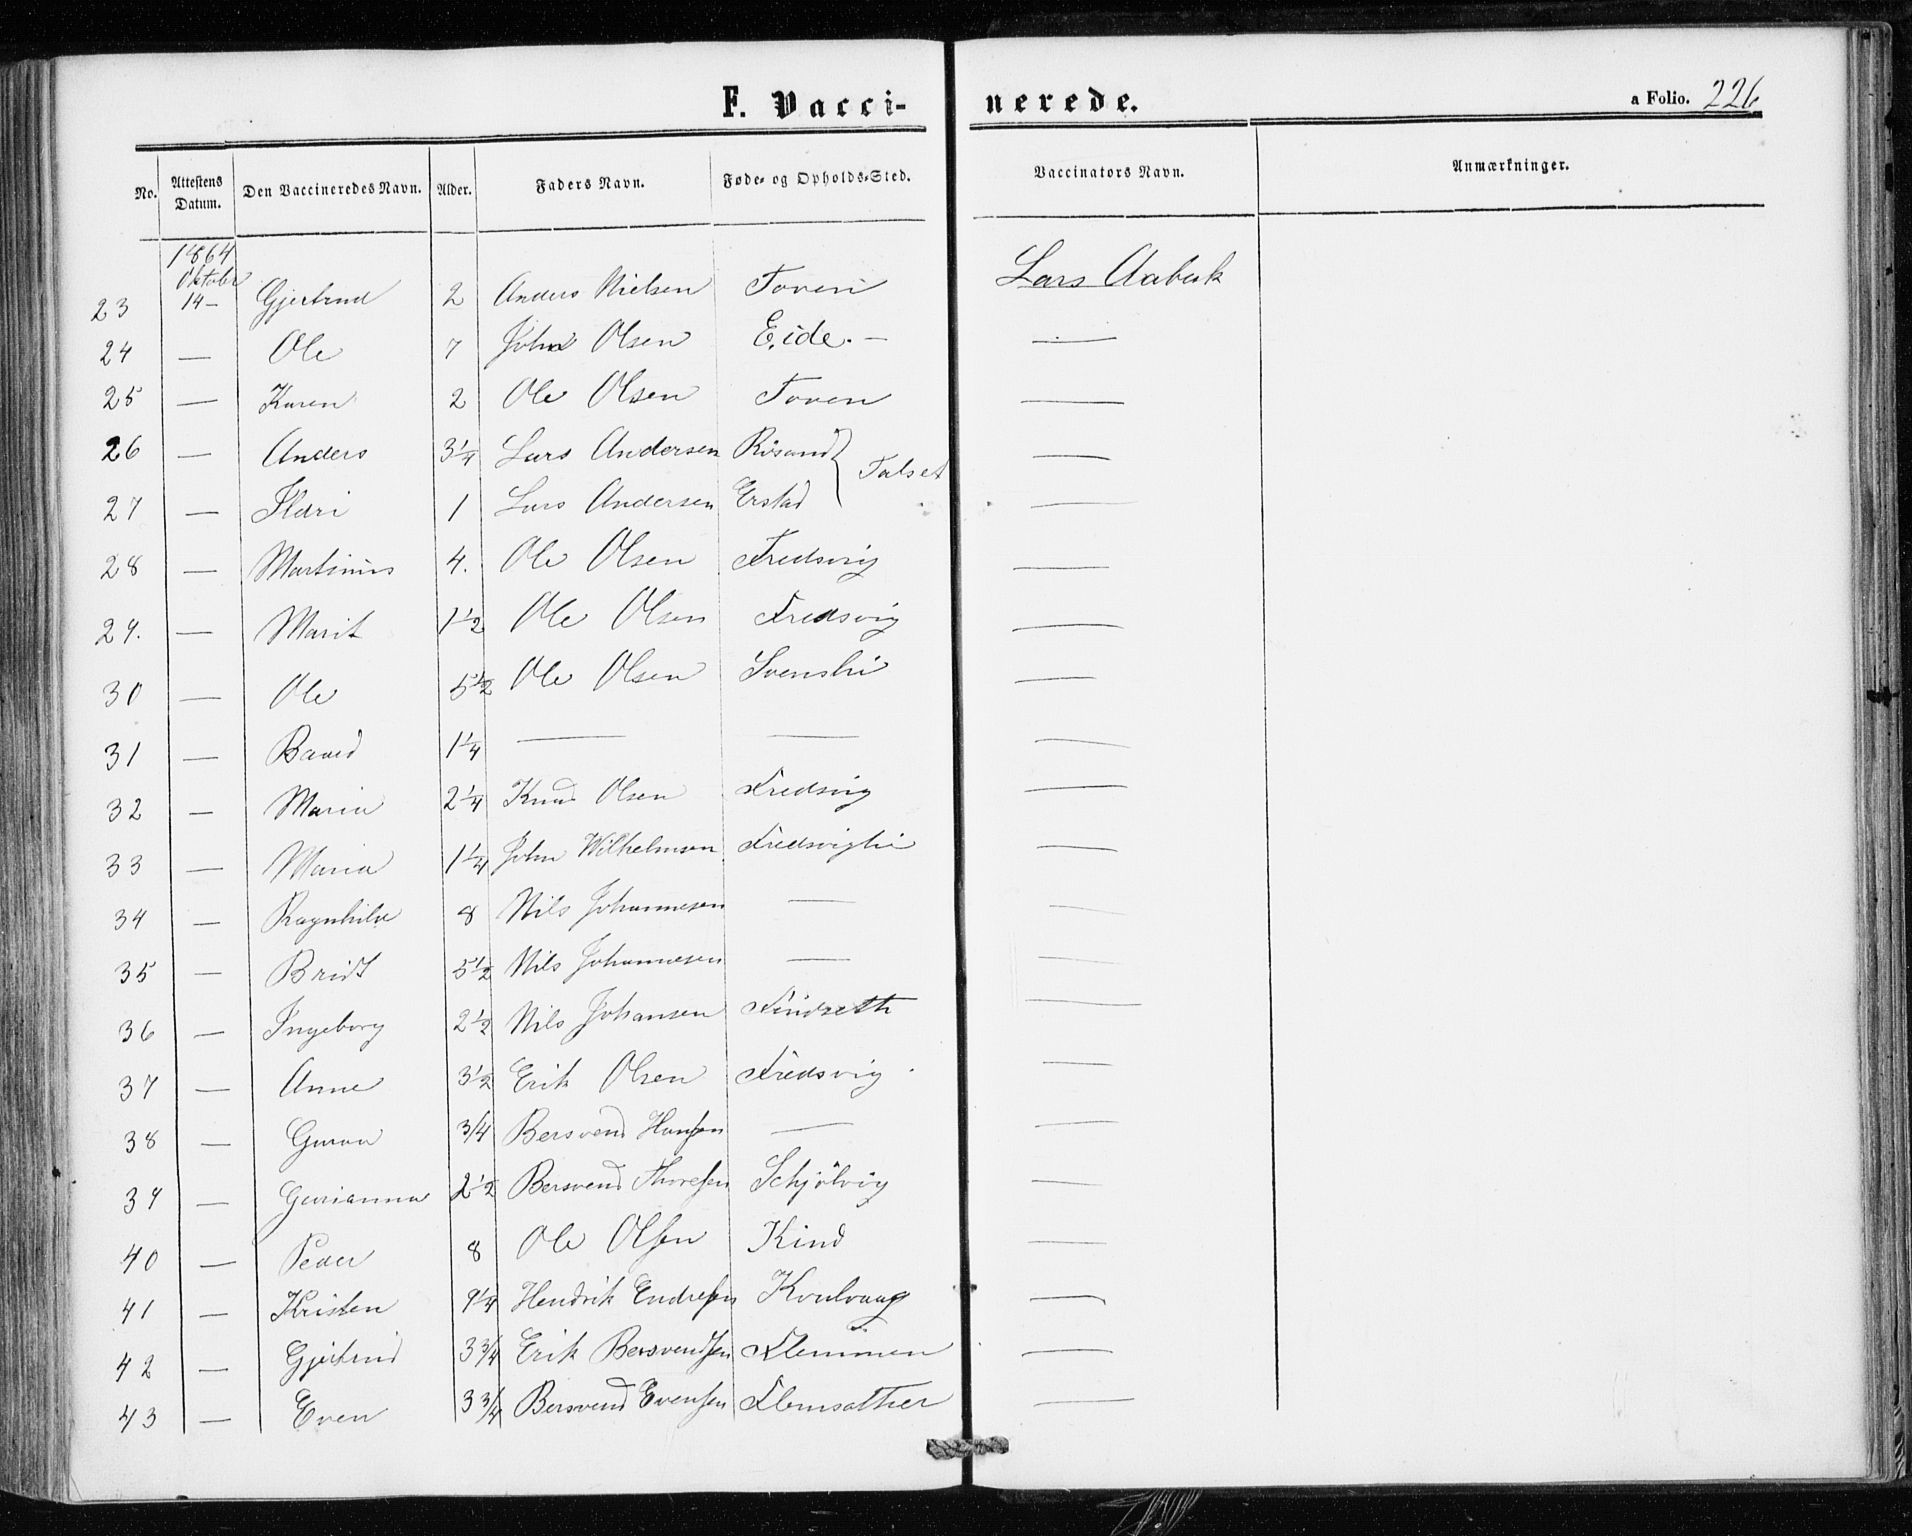 F. Vacci- nerede. a Folio. 226
No. Attestens Datum. Den Vaccineredes Navn. Alder. Faders Navn. Føde- og Opholds-Sted. Vaccinators Navn. Anmærkninger.
1864
Oktober
23 14 – Gjertrud 2 Anders Nielsen Toven Lars Aabuk
24 — Ole 7 John Olsen Eide. – —
25 — Karen 2 Ole Olsen Toven —
26 — Anders 3 1/4 Lars Andersen Risand Talset —
27 — Ildri 1 Lars Andersen Erstad —
28 — Martinus 4. Ole Olsen Fredsvig —
29. — Marit 1 1/2 Ole Olsen Fredsvig —
30 — Ole 5 1/2 Ole Olsen Svensli —
31 — Baard 1 1/4 — — —
32 — Maria 2 1/4 Knud Olsen Fredsvig —
33 — Maria 1 1/4 John Wilhelmsen Fredsvigli —
34 — Ragnhild 8 Nils Johannesen — —
35 — Bridt 5 1/2 Nils Johannesen — —
36 — Ingeborg 2 1/2 Nils Johansen Findseth —
37 — Anne 3 1/2 Erik Olsen Fredsvig —
38 — Guroa 3/4 Bersvend Hansen — —
39 — Gurianna 2 1/2 Bersvend Thoresen Schjølvig —
40 — Peder 8 Ole Olsen Kind —
41 — Kristen 9 1/4 Hendrik Endresen Kvalvaag —
42 — Gjertrud 3 3/4 Erik Bersvendsen Flemmen —
43 — Even 3 3/4 Bersvend Evensen Flemsæther —